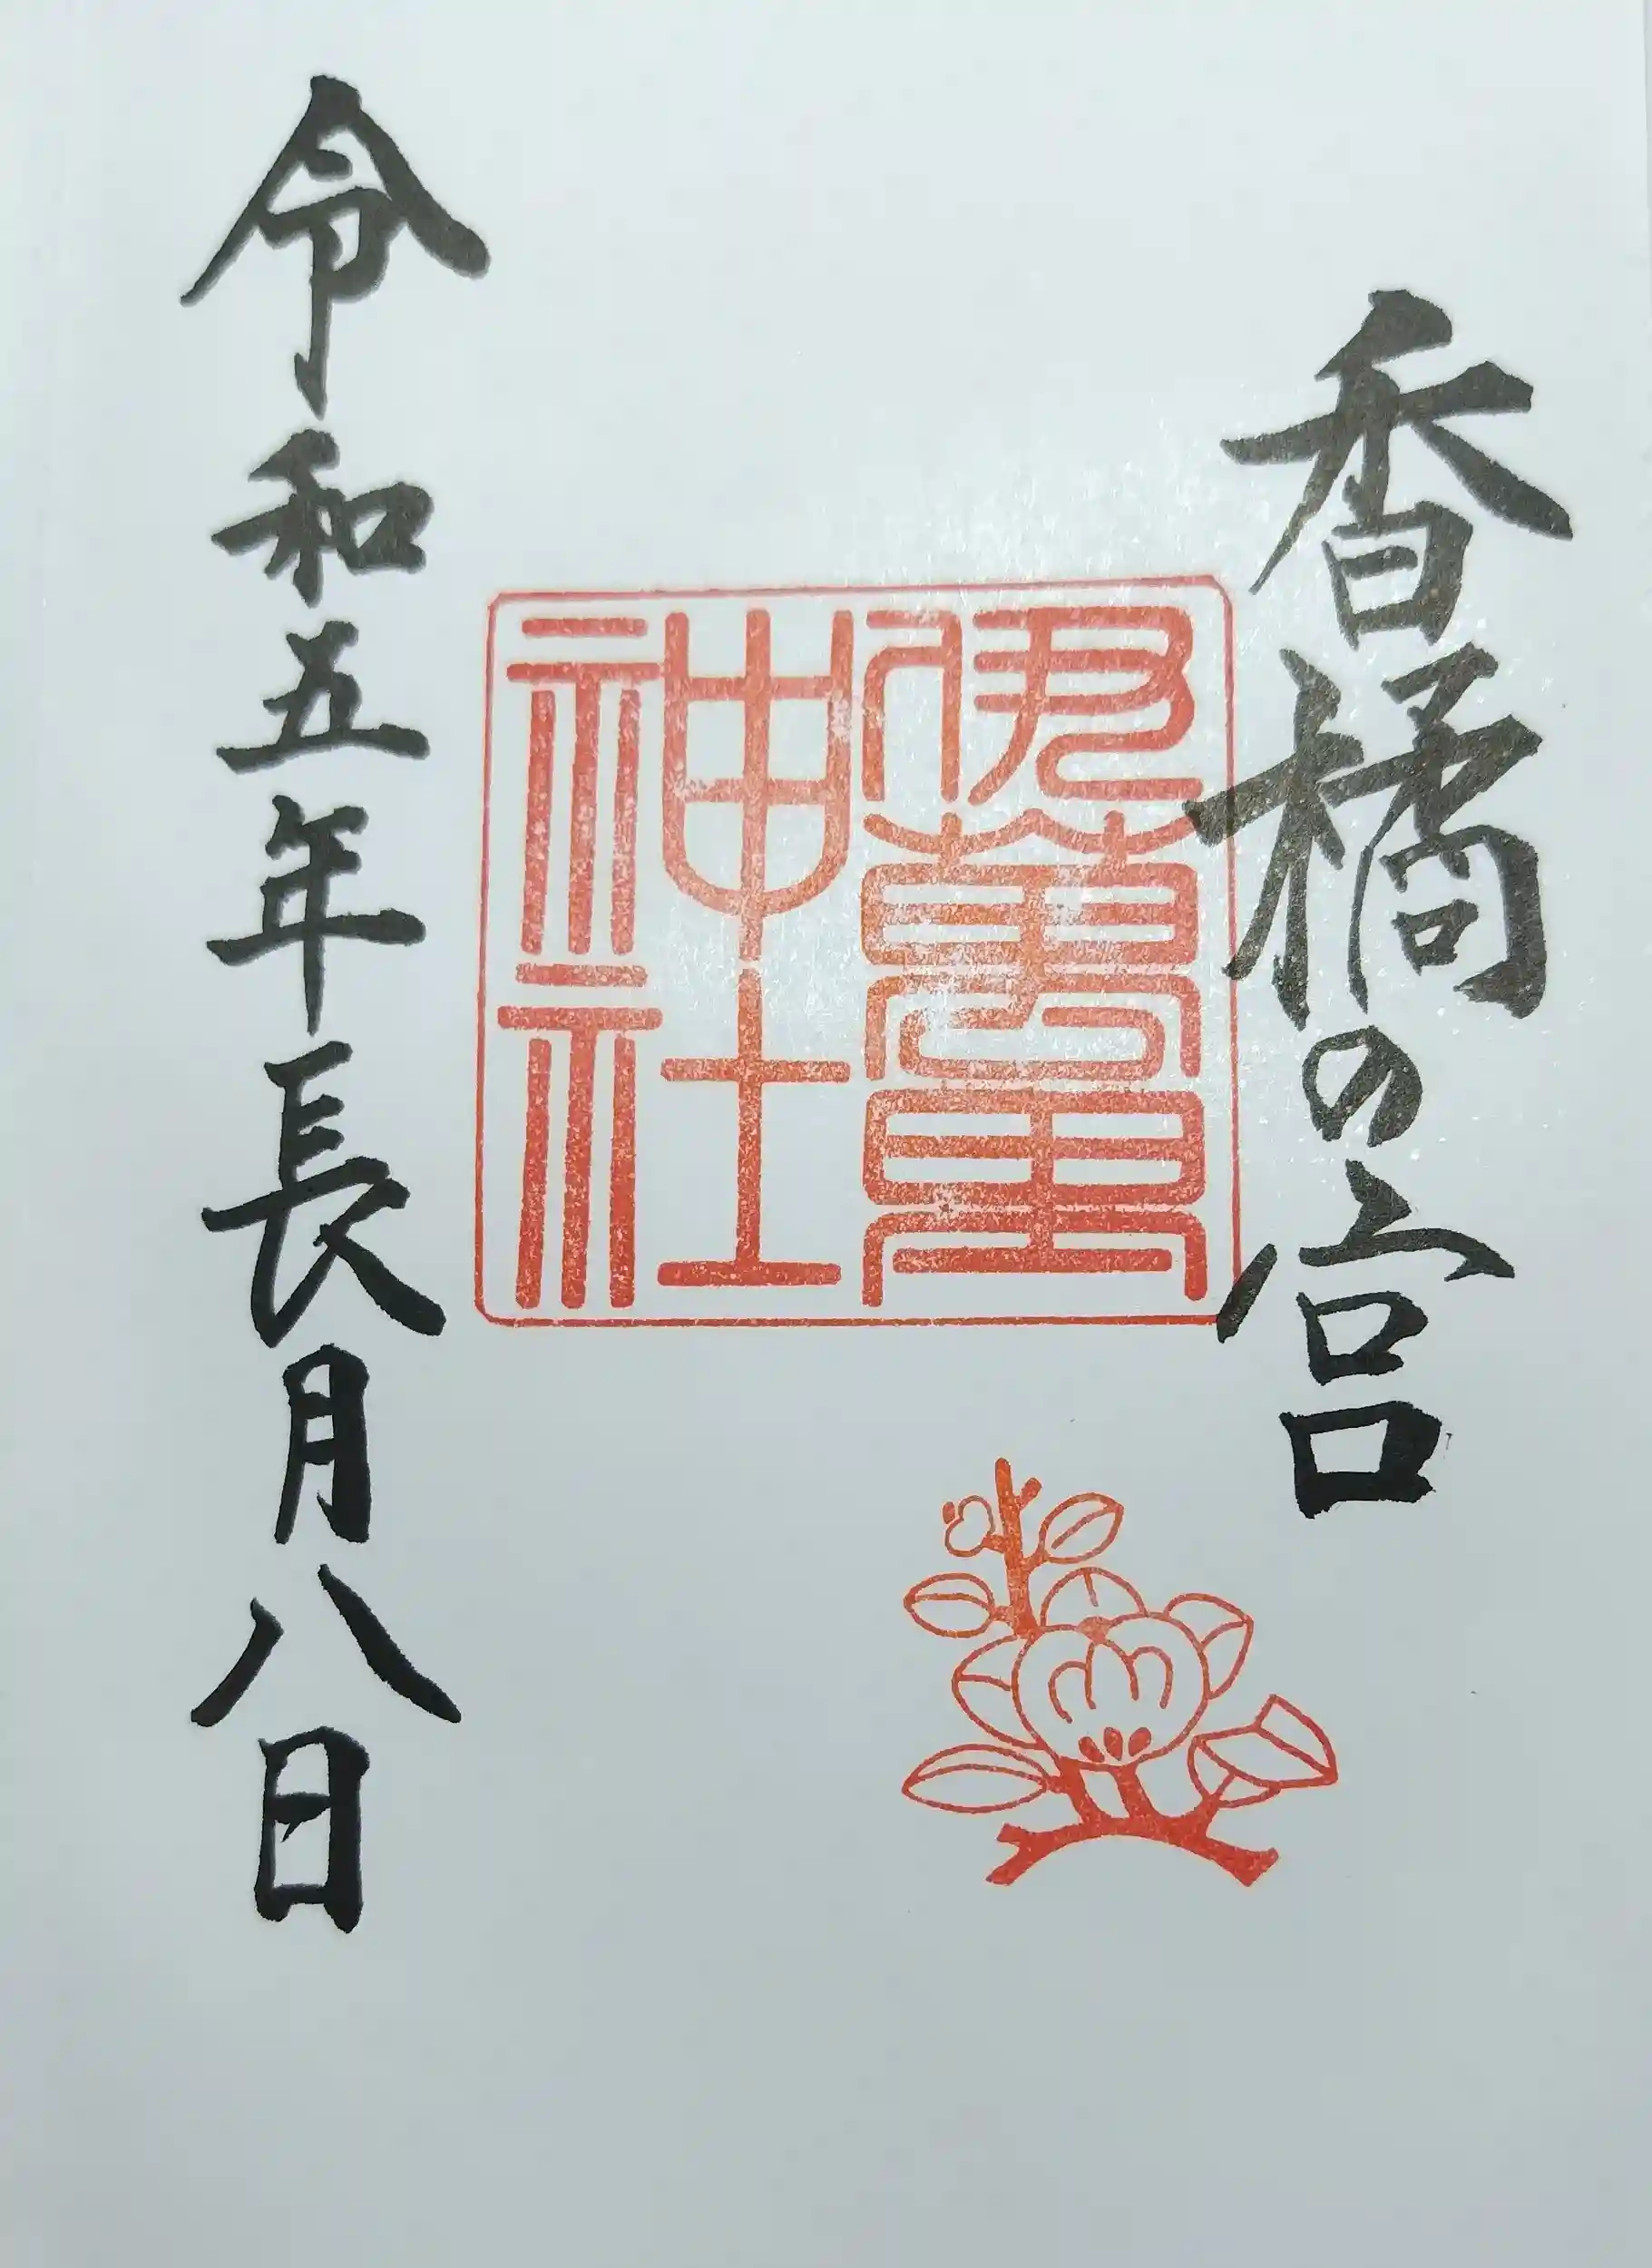 香橘の宮
伊萬里
神社
令和五年長月八日